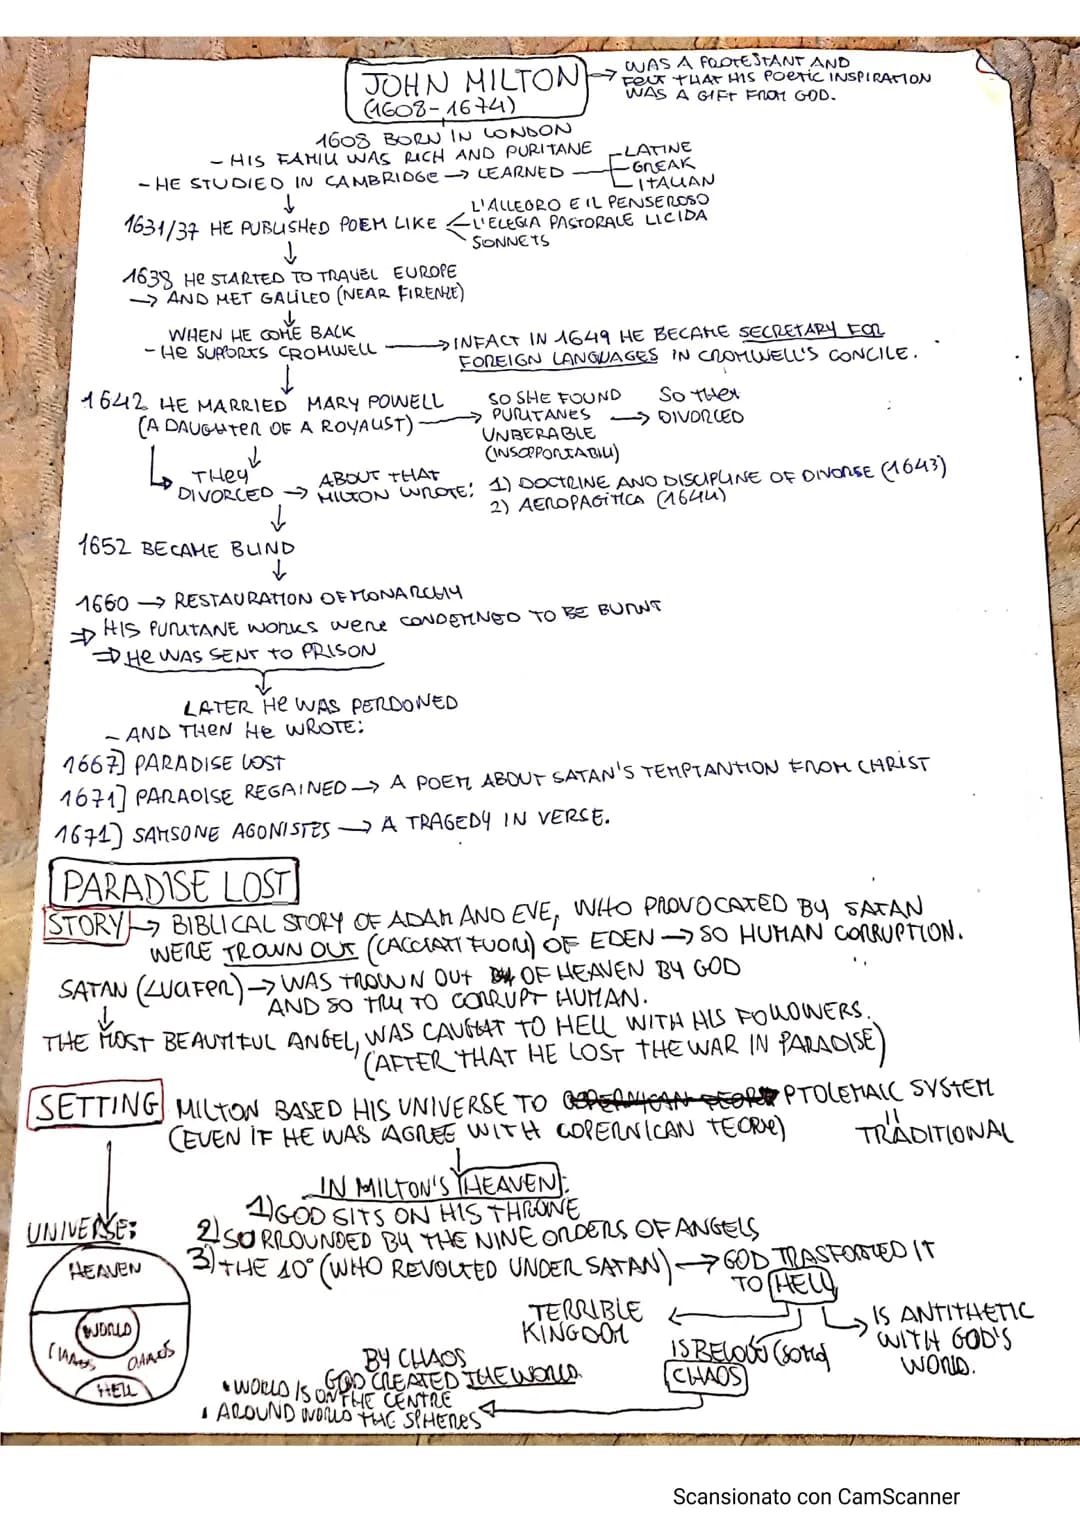 JOHN MILTON
(1608-1674)
→ WAS A PROTESTANT AND
FELT THAT HIS POETIC INSPIRATION
WAS A GIFT FROM GOD.
1608 BORN IN LONDON
- HIS FAMILI WAS RICH AND PURITANE
- HE STUDIED IN CAMBRIDGE → LEARNED
LATINE
GREAK
ITALIAN
↓
1631/37 HE PUBLISHED POEM LIKE
L'ALLEGRO E IL PENSEROSO
L'ELEGIA PASTORALE LICIDA
SONNETS
↓
1638 HE STARTED TO TRAVEL EUROPE
→ AND MET GALILEO (NEAR FIRENZE)
↓
WHEN HE COME BACK
- HE SUPPORTS CROMWELL
→ INFACT IN 1649 HE BECAME SECRETARY FOR
FOREIGN LANGUAGES IN CROMWELL'S CONCILE.
↓
1642 HE MARRIED MARY POWELL
(A DAUGHTER OF A ROYALIST) →
SO SHE FOUND
PURITANES
UNBERABLE
(INSOPPORTABILI)
SO THEY
→ DIVORCED
THEY
DIVORCED →
ABOUT THAT
MILTON WROTE:
1) DOCTRINE AND DISCIPLINE OF DIVORSE (1643)
2) AEROPAGITICA (1644)
↓
1652 BECAME BLIND
↓
1660 → RESTAURATION OF MONARCHY
⇒ HIS PURITANE WORKS WERE CONDEMNED TO BE BURNT
⇒ HE WAS SENT TO PRISON
↓
LATER HE WAS PERDONED
- AND THEN HE WROTE:
1667] PARADISE LOST
1671] PARADISE REGAINED → A POEM ABOUT SATAN'S TEMPTANTION FROM CHRIST
1671) SAMSONE AGONISTES → A TRAGEDY IN VERSE.
PARADISE LOST
STORY → BIBLICAL STORY OF ADAM AND EVE, WHO PROVOCATED BY SATAN
WERE TROWN OUT (CACCIATI FUORI) OF EDEN → SO HUMAN CORRUPTION.
SATAN (LUCIFER) → WAS TROWN OUT OF HEAVEN BY GOD
AND SO TRY TO CORRUPT HUMAN.
↓
THE MOST BEAUTIFUL ANGEL, WAS CAUGHT TO HELL WITH HIS FOLLOWERS.
(AFTER THAT HE LOST THE WAR IN PARADISE)
SETTING MILTON BASED HIS UNIVERSE TO PTOLEMAIC SYSTEM
(EVEN IF HE WAS AGREE WITH COPERNICAN TEORY)
TRADITIONAL
IN MILTON'S HEAVEN:
1) GOD SITS ON HIS THRONE
2) SORROUNDED BY THE NINE ORDERS OF ANGELS
3) THE 10° (WHO REVOLTED UNDER SATAN) → GOD TRASFORMED IT
TO HELL
UNIVERSE:
HEAVEN
WORLD
CHAOS
CHAOS
HELL
TERRIBLE
KINGDOM
IS BELOW (SOTTO)
CHAOS
IS ANTITHETIC
WITH GOD'S
WORLD.
BY CHAOS
GOD CREATED THE WORLD
• WORLD IS ON THE CENTRE
• AROUND WORLD THE SPHERES
Scansionato con CamScanner